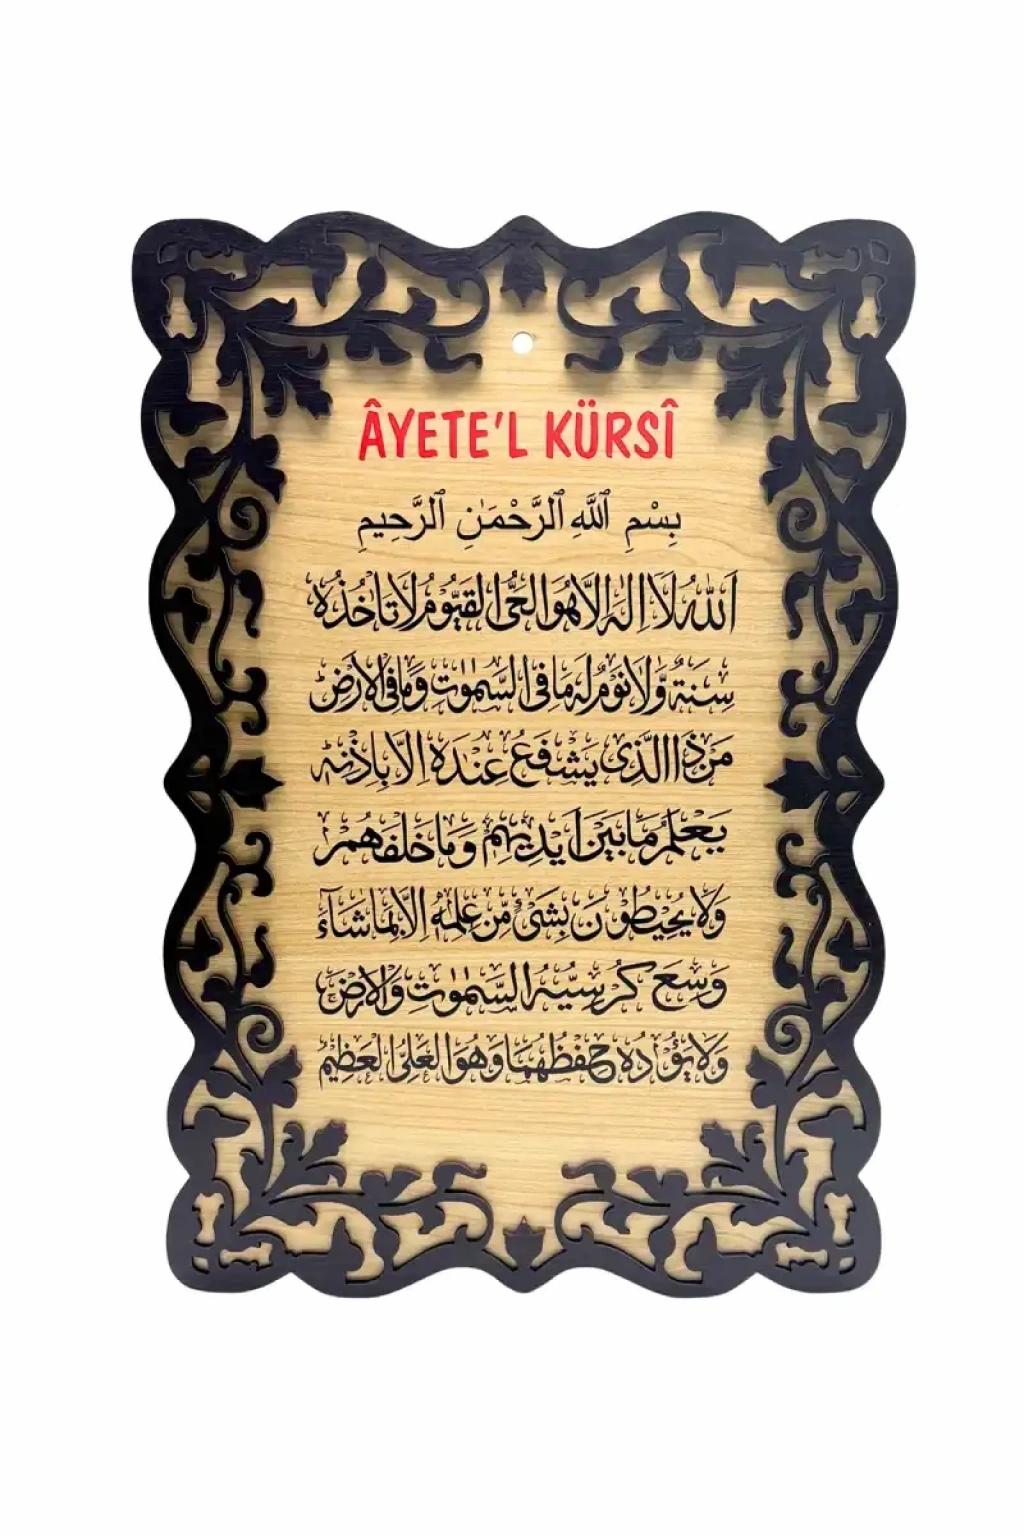 ÂYETE'L KÜRSÎ
بِسْمِ ٱللَّهِ ٱلرَّحْمَـٰنِ ٱلرَّحِيمِ
اَللّٰهُ لَٓا اِلٰهَ اِلَّا هُوَ الْحَيُّ الْقَيُّومُ لَا تَأْخُذُهُ
سِنَةٌ وَلَا نَوْمٌ لَهُ مَا فِي السَّمٰوَاتِ وَمَا فِي الْاَرْضِ
مَنْ ذَا الَّذِي يَشْفَعُ عِنْدَهُ اِلَّا بِاِذْنِهِ
يَعْلَمُ مَا بَيْنَ اَيْدِيهِمْ وَمَا خَلْفَهُمْ
وَلَا يُحِيطُونَ بِشَيْءٍ مِنْ عِلْمِهِ اِلَّا بِمَا شَاءَ
وَسِعَ كُرْسِيُّهُ السَّمٰوَاتِ وَالْاَرْضَ
وَلَا يَؤُدُهُ حِفْظُهُمَا وَهُوَ الْعَلِيُّ الْعَظِيمُ